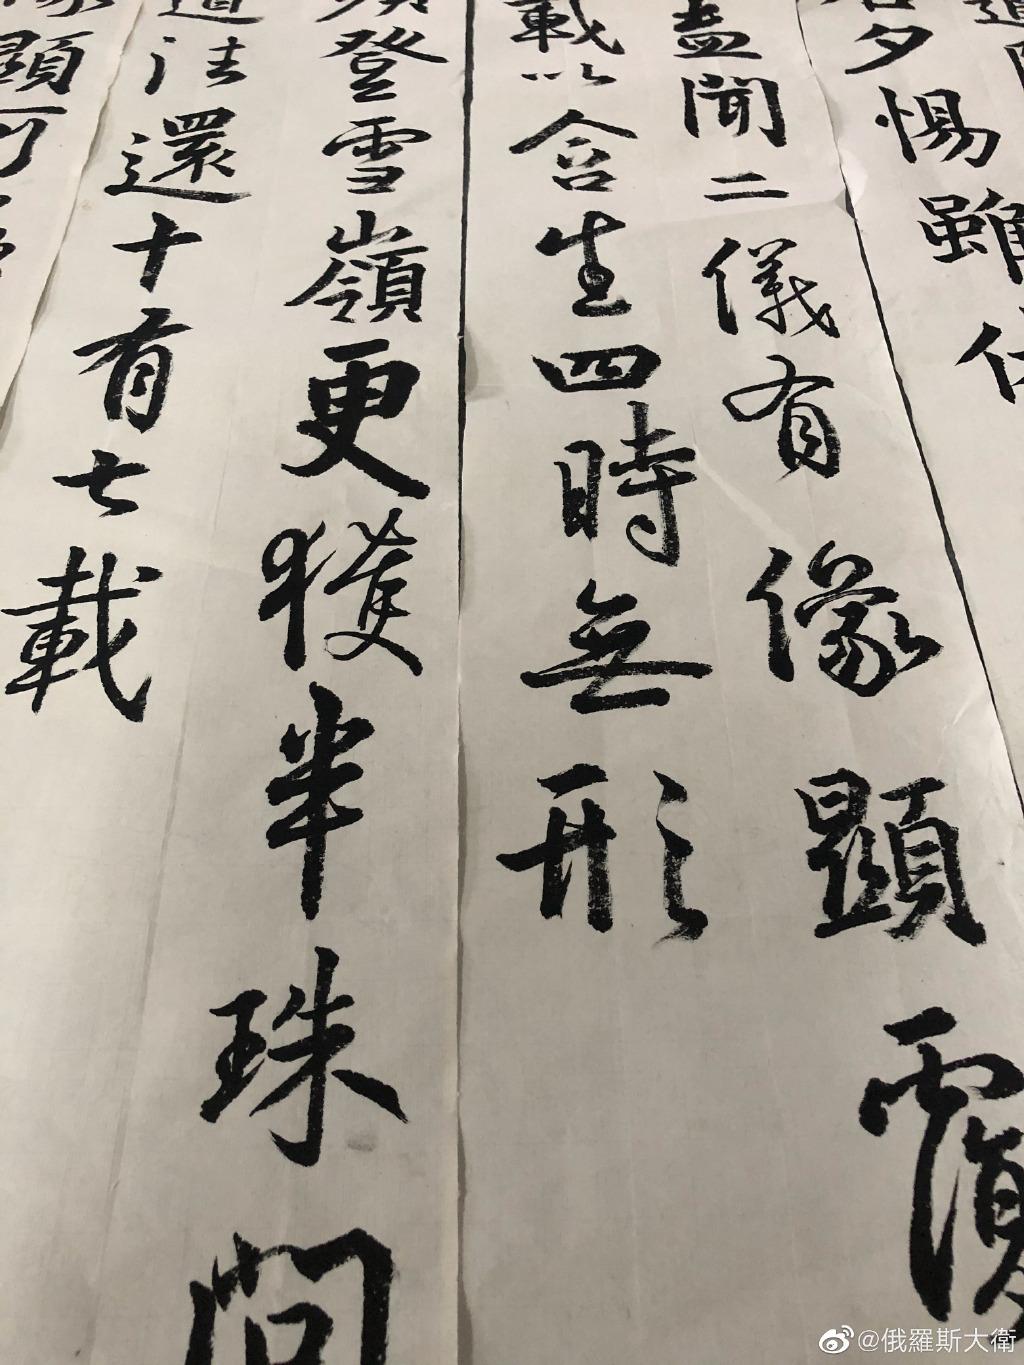 夕惕雖
蓋聞二儀有像顯覆
載以含生四時無形
登雪嶺更獲半珠問
道法還十有七載
顯可
@俄羅斯大衛